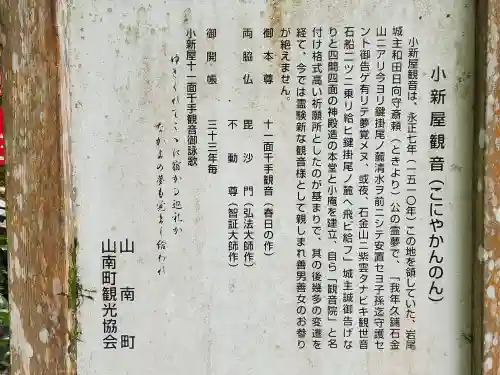 小新屋観音(こにやかんのん)
小新屋観音は、永正七年(一五一〇年)この地を領していた、岩尾
城主和田日向守斎頼(ときより)公の霊夢で、「我年久鋪石金
山ニアリ今ヨリ鍵掛尾ノ麓清水ヲ前ニシテ安置セヨ子孫迄守護セ
ント御告ゲ有リテ夢覚メヌ、或夜、石金山ニ紫雲タナビキ観世音
石船二ツニ乗リ給ヒ鍵掛尾ノ麓ヘ飛ビ給フ」城主誠御告げな
りと四間四面の神殿造の本堂と小庵を建立、自ら「観音院」と名
付け格式高い祈願所としたのが基まりで、其の後幾多の変遷を
経て、今では霊験新な観音様として親しまれ善男善女のお参り
が絶えません。
御本尊 十一面千手観音(春日の作)
両脇仏 毘沙門(弘法大師作)
不動尊(智証大師作)
御開帳 三十三年毎
小新屋十一面千手観音御詠歌
ゆきくれてこゝに宿かる巡礼か
なかよの夢も覚まし給われ
山南町
山南町観光協会